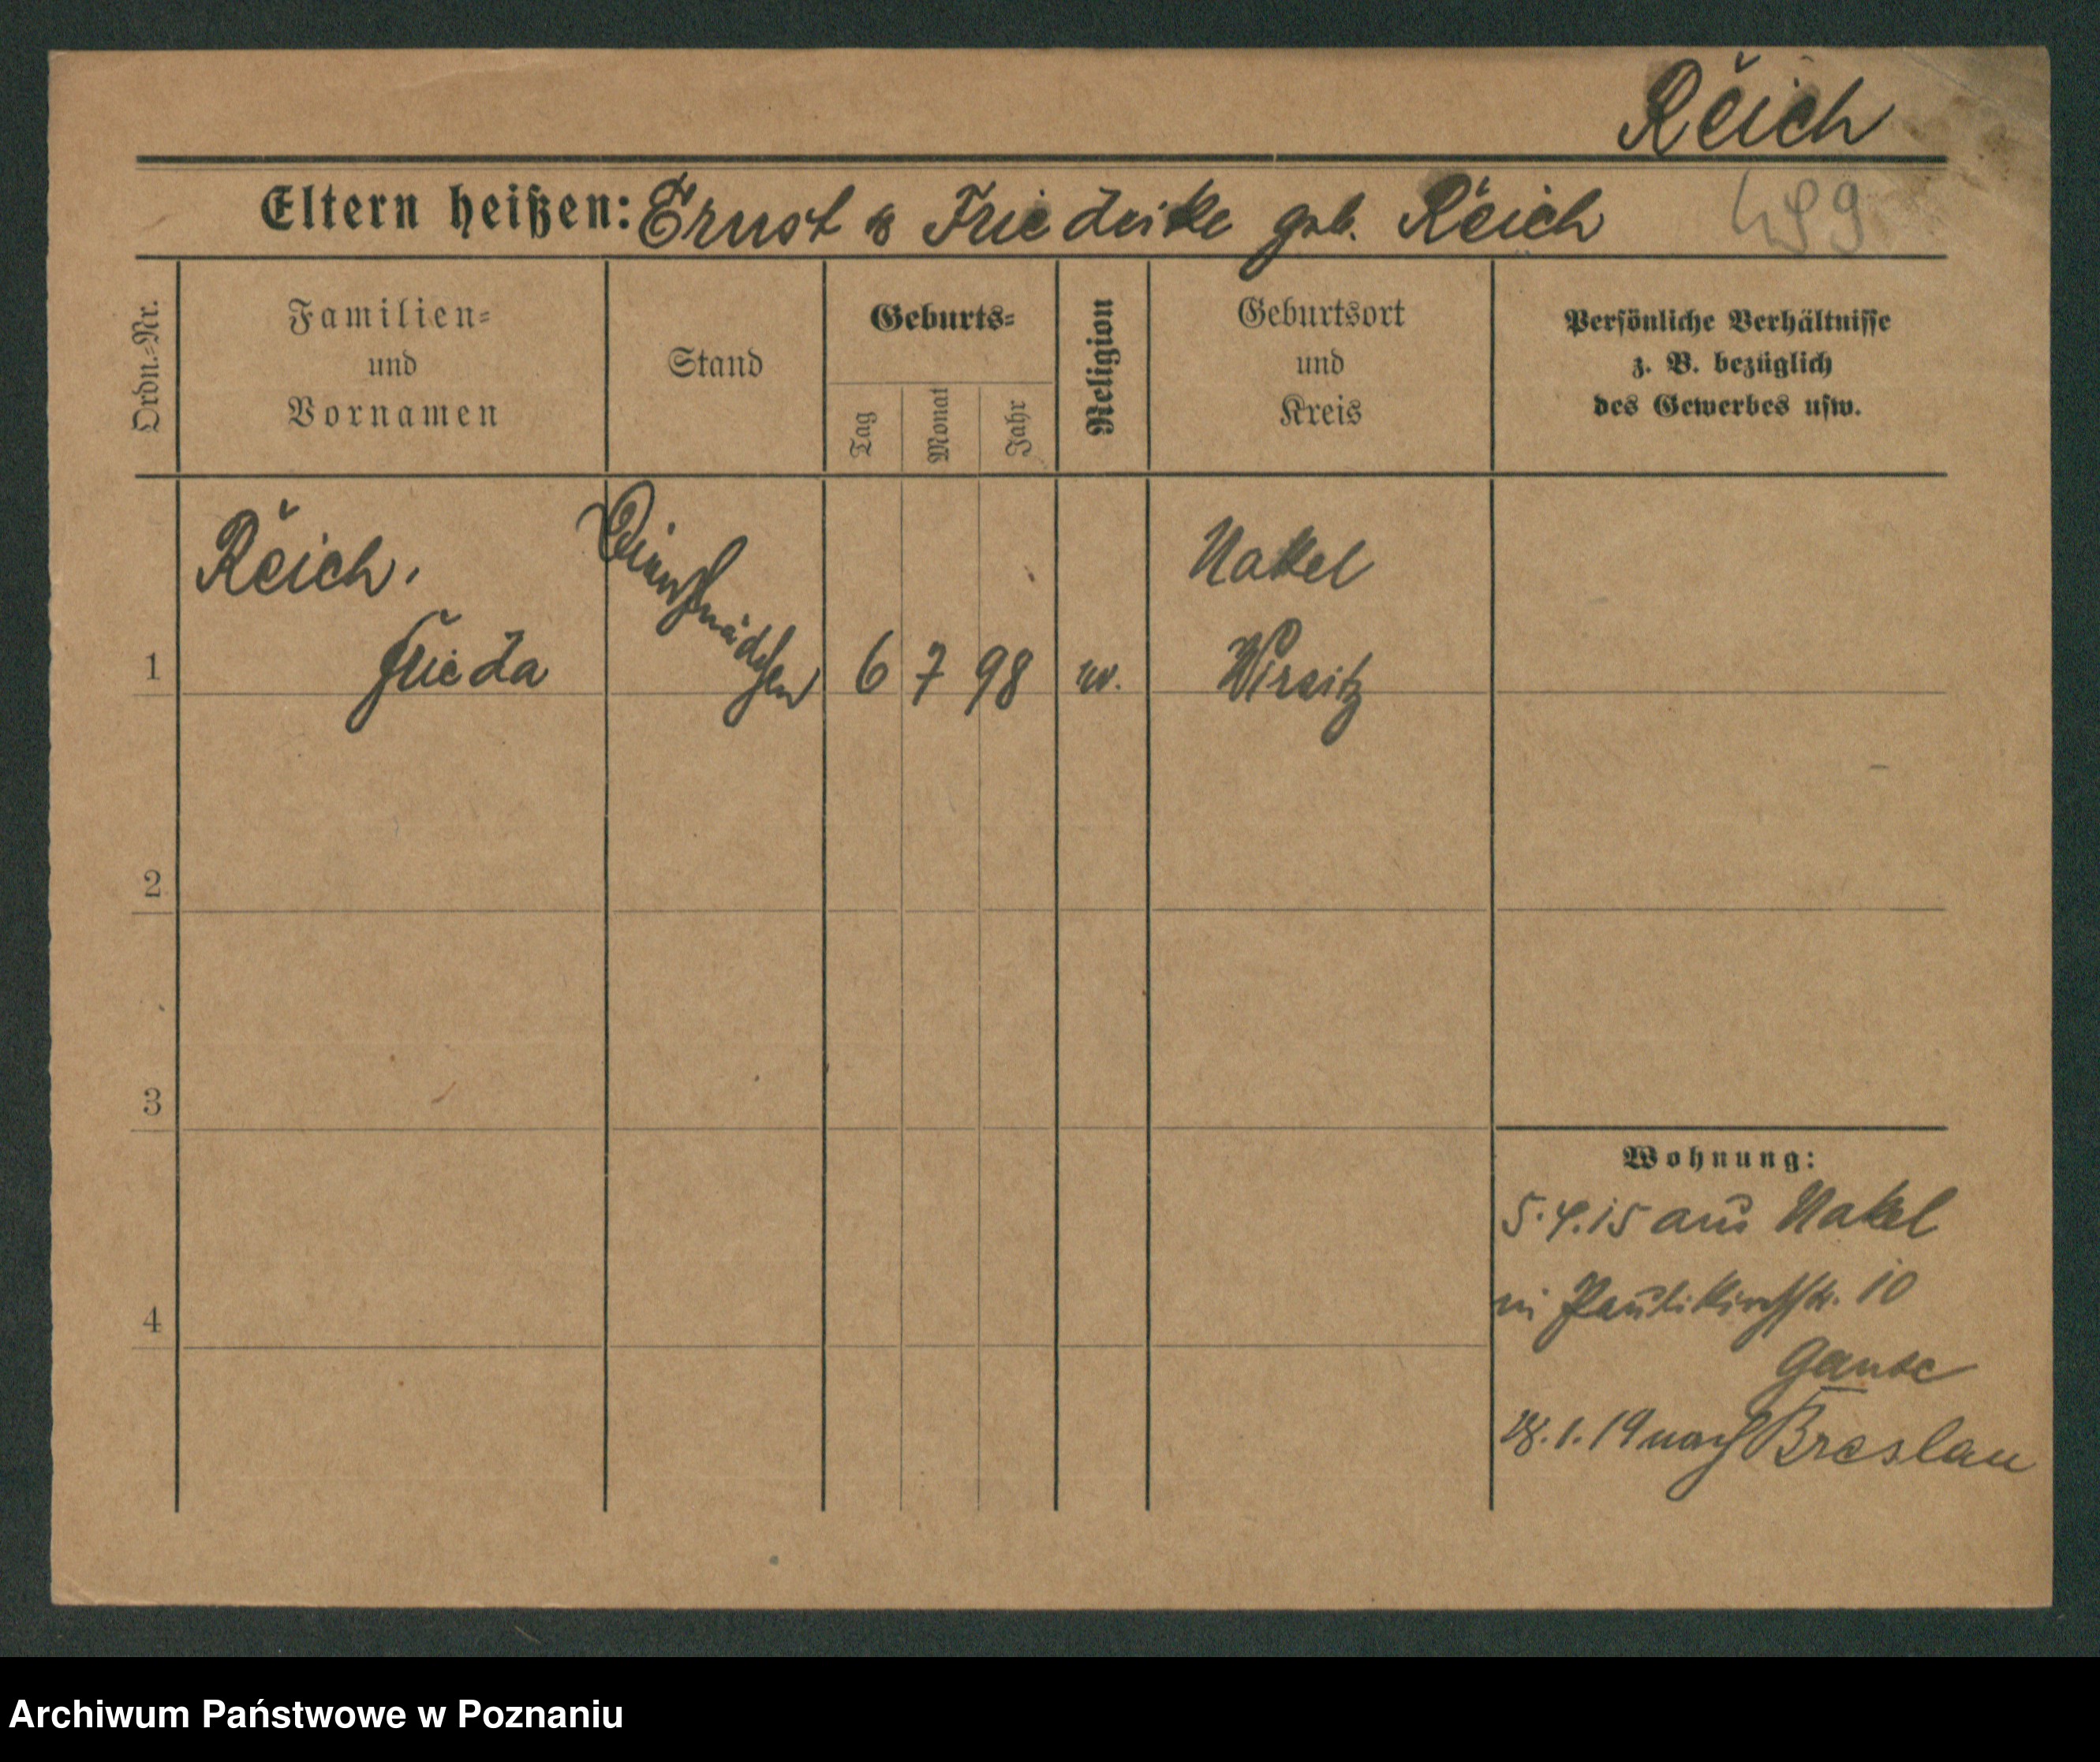 Reich
Eltern heißen: Ernst & Friederike geb. Reich 499
Ordn.=Nr.
Familien=
und
Vornamen
Stand
Geburts=
Tag
Monat
Jahr
Religion
Geburtsort
und
Kreis
Persönliche Verhältnisse
z. B. bezüglich
des Gewerbes usw.
Reich.
Frieda
Dienstmädchen
1
6 7 98
ev.
Nakel
Wirsitz
2
3
4
Wohnung:
5.4.15 aus Nakel
Paulikirchstr. 10
28.1.19 nach Breslau
Archiwum Państwowe w Poznaniu